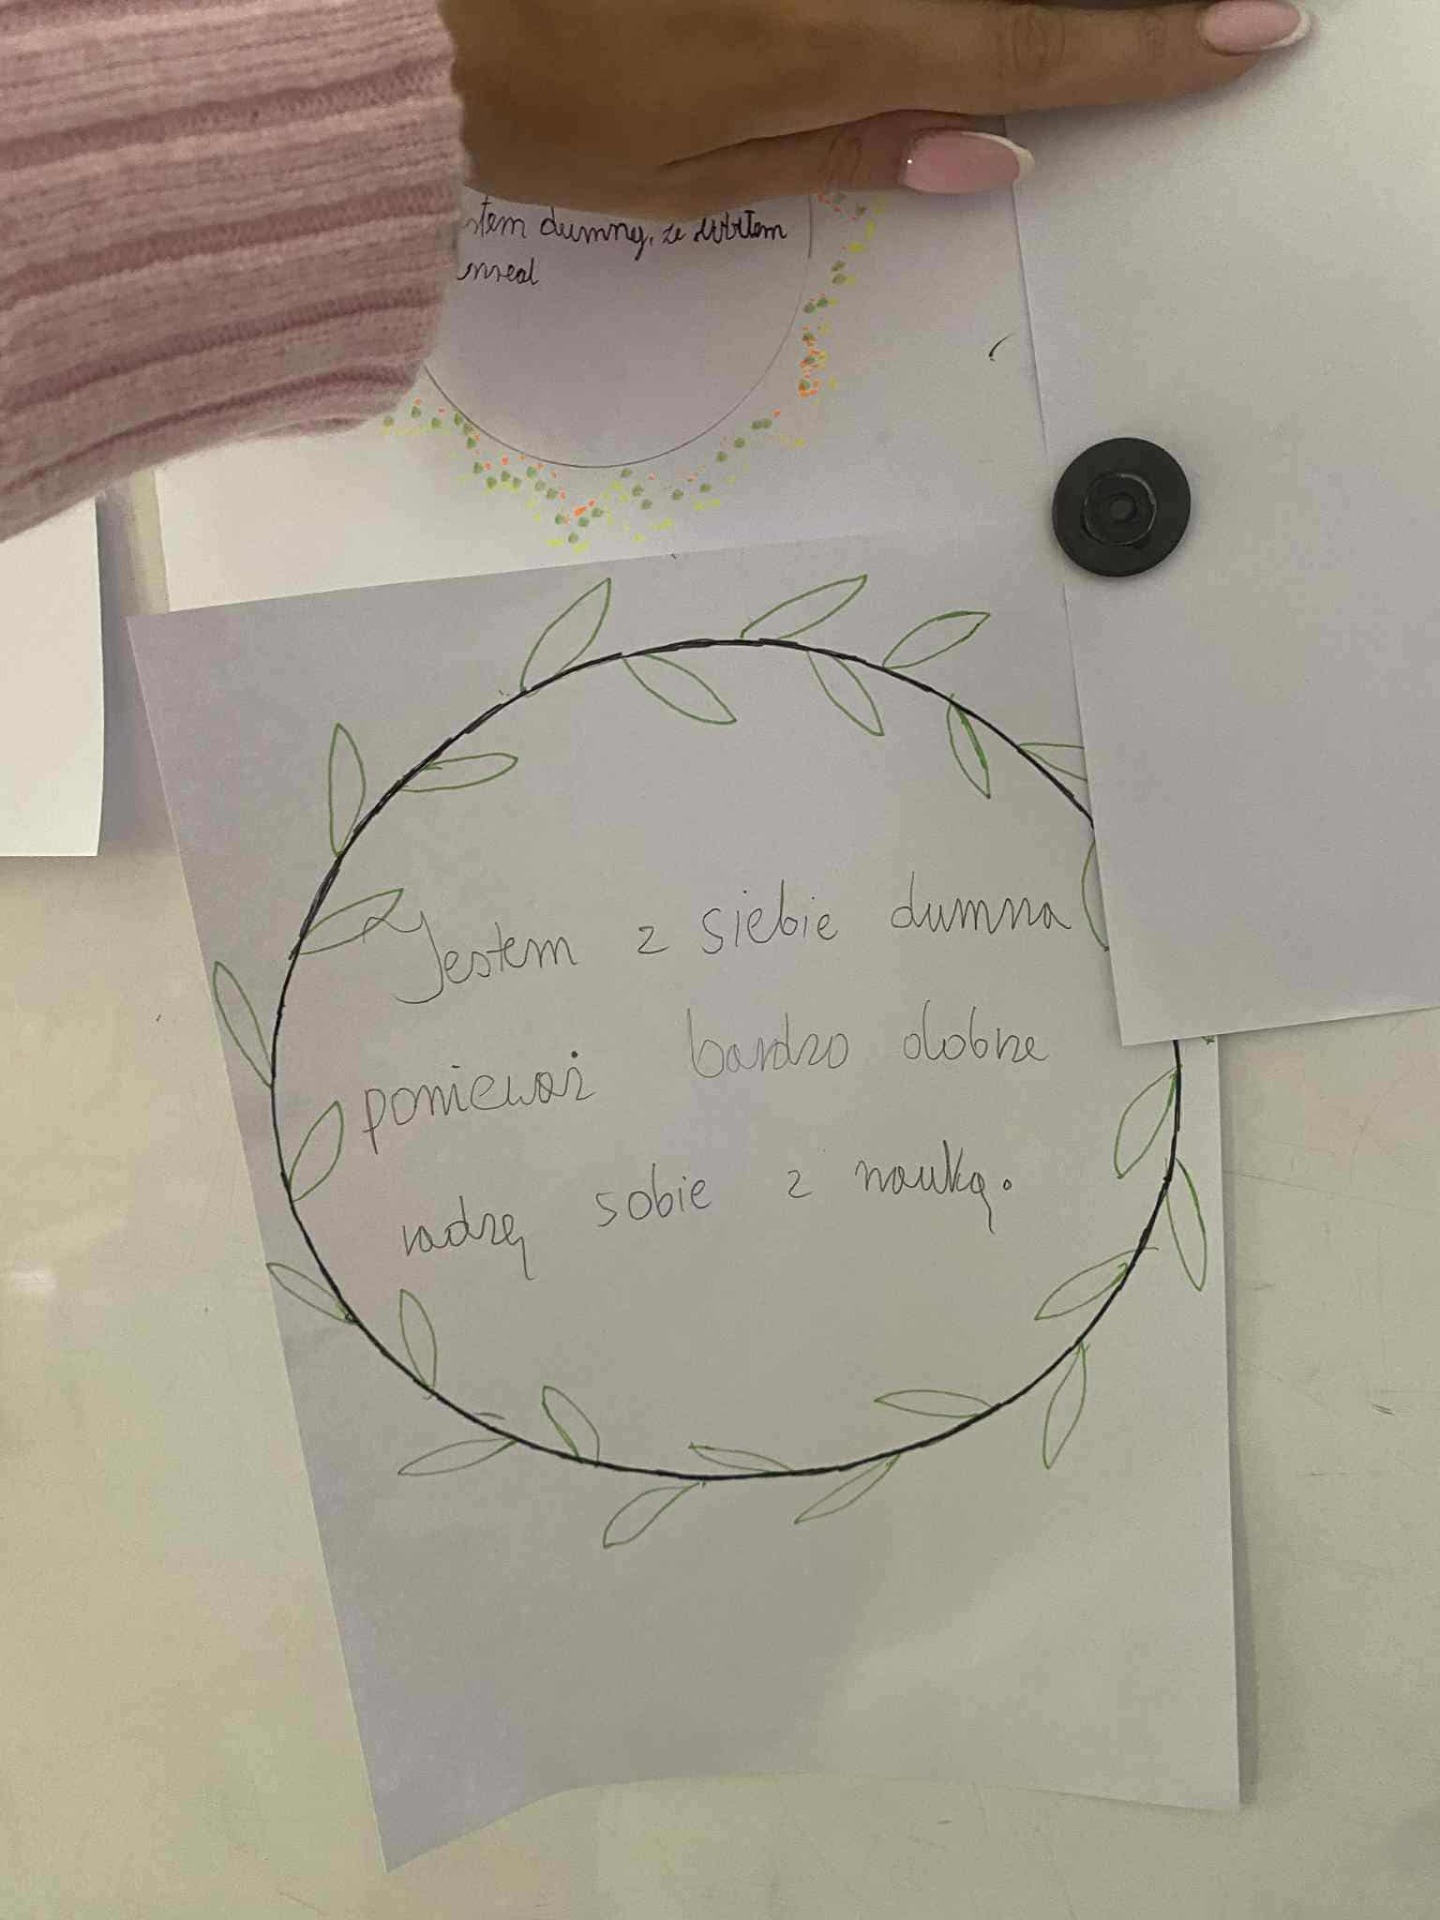 dumny, że
Jestem z siebie dumna
ponieważ bardzo dobrze
radzę sobie z nauką.